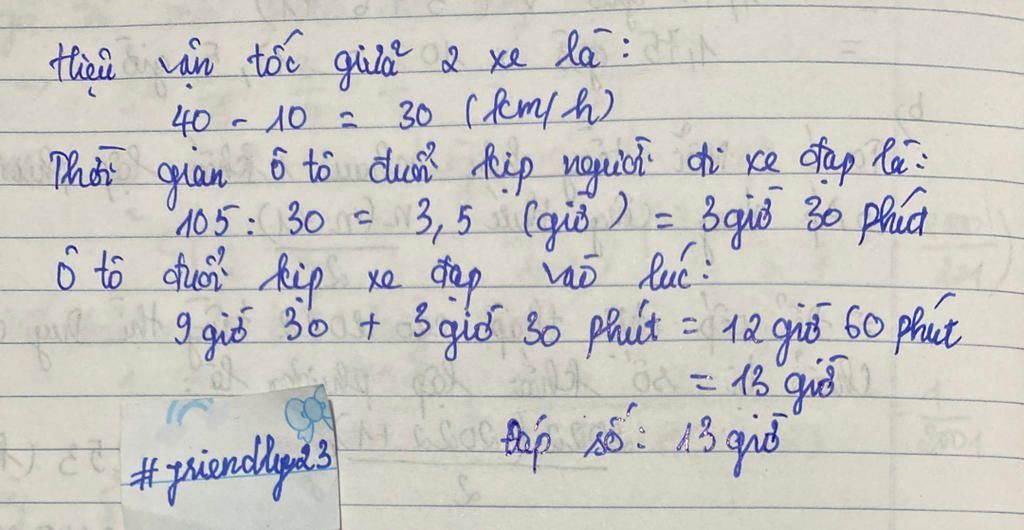 Hiệu vận tốc giữa 2 xe là:
40 - 10 = 30 (km/h)
Thời gian ô tô đuổi kịp người đi xe đạp là:
105 : 30 = 3,5 (giờ) = 3 giờ 30 phút
Ô tô đuổi kịp xe đạp vào lúc:
9 giờ 30 + 3 giờ 30 phút = 12 giờ 60 phút
= 13 giờ
Đáp số: 13 giờ
#friendly23